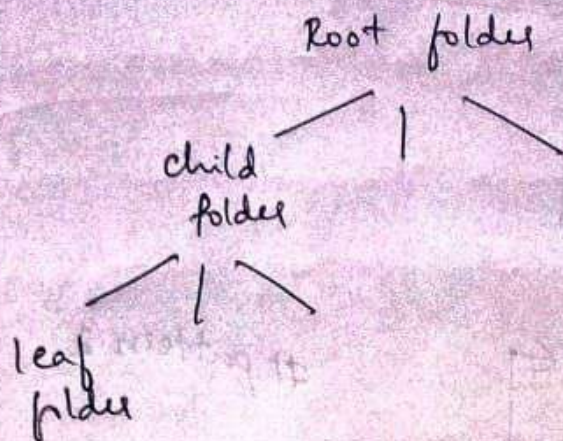 Root folder
child
folder
leaf
folder